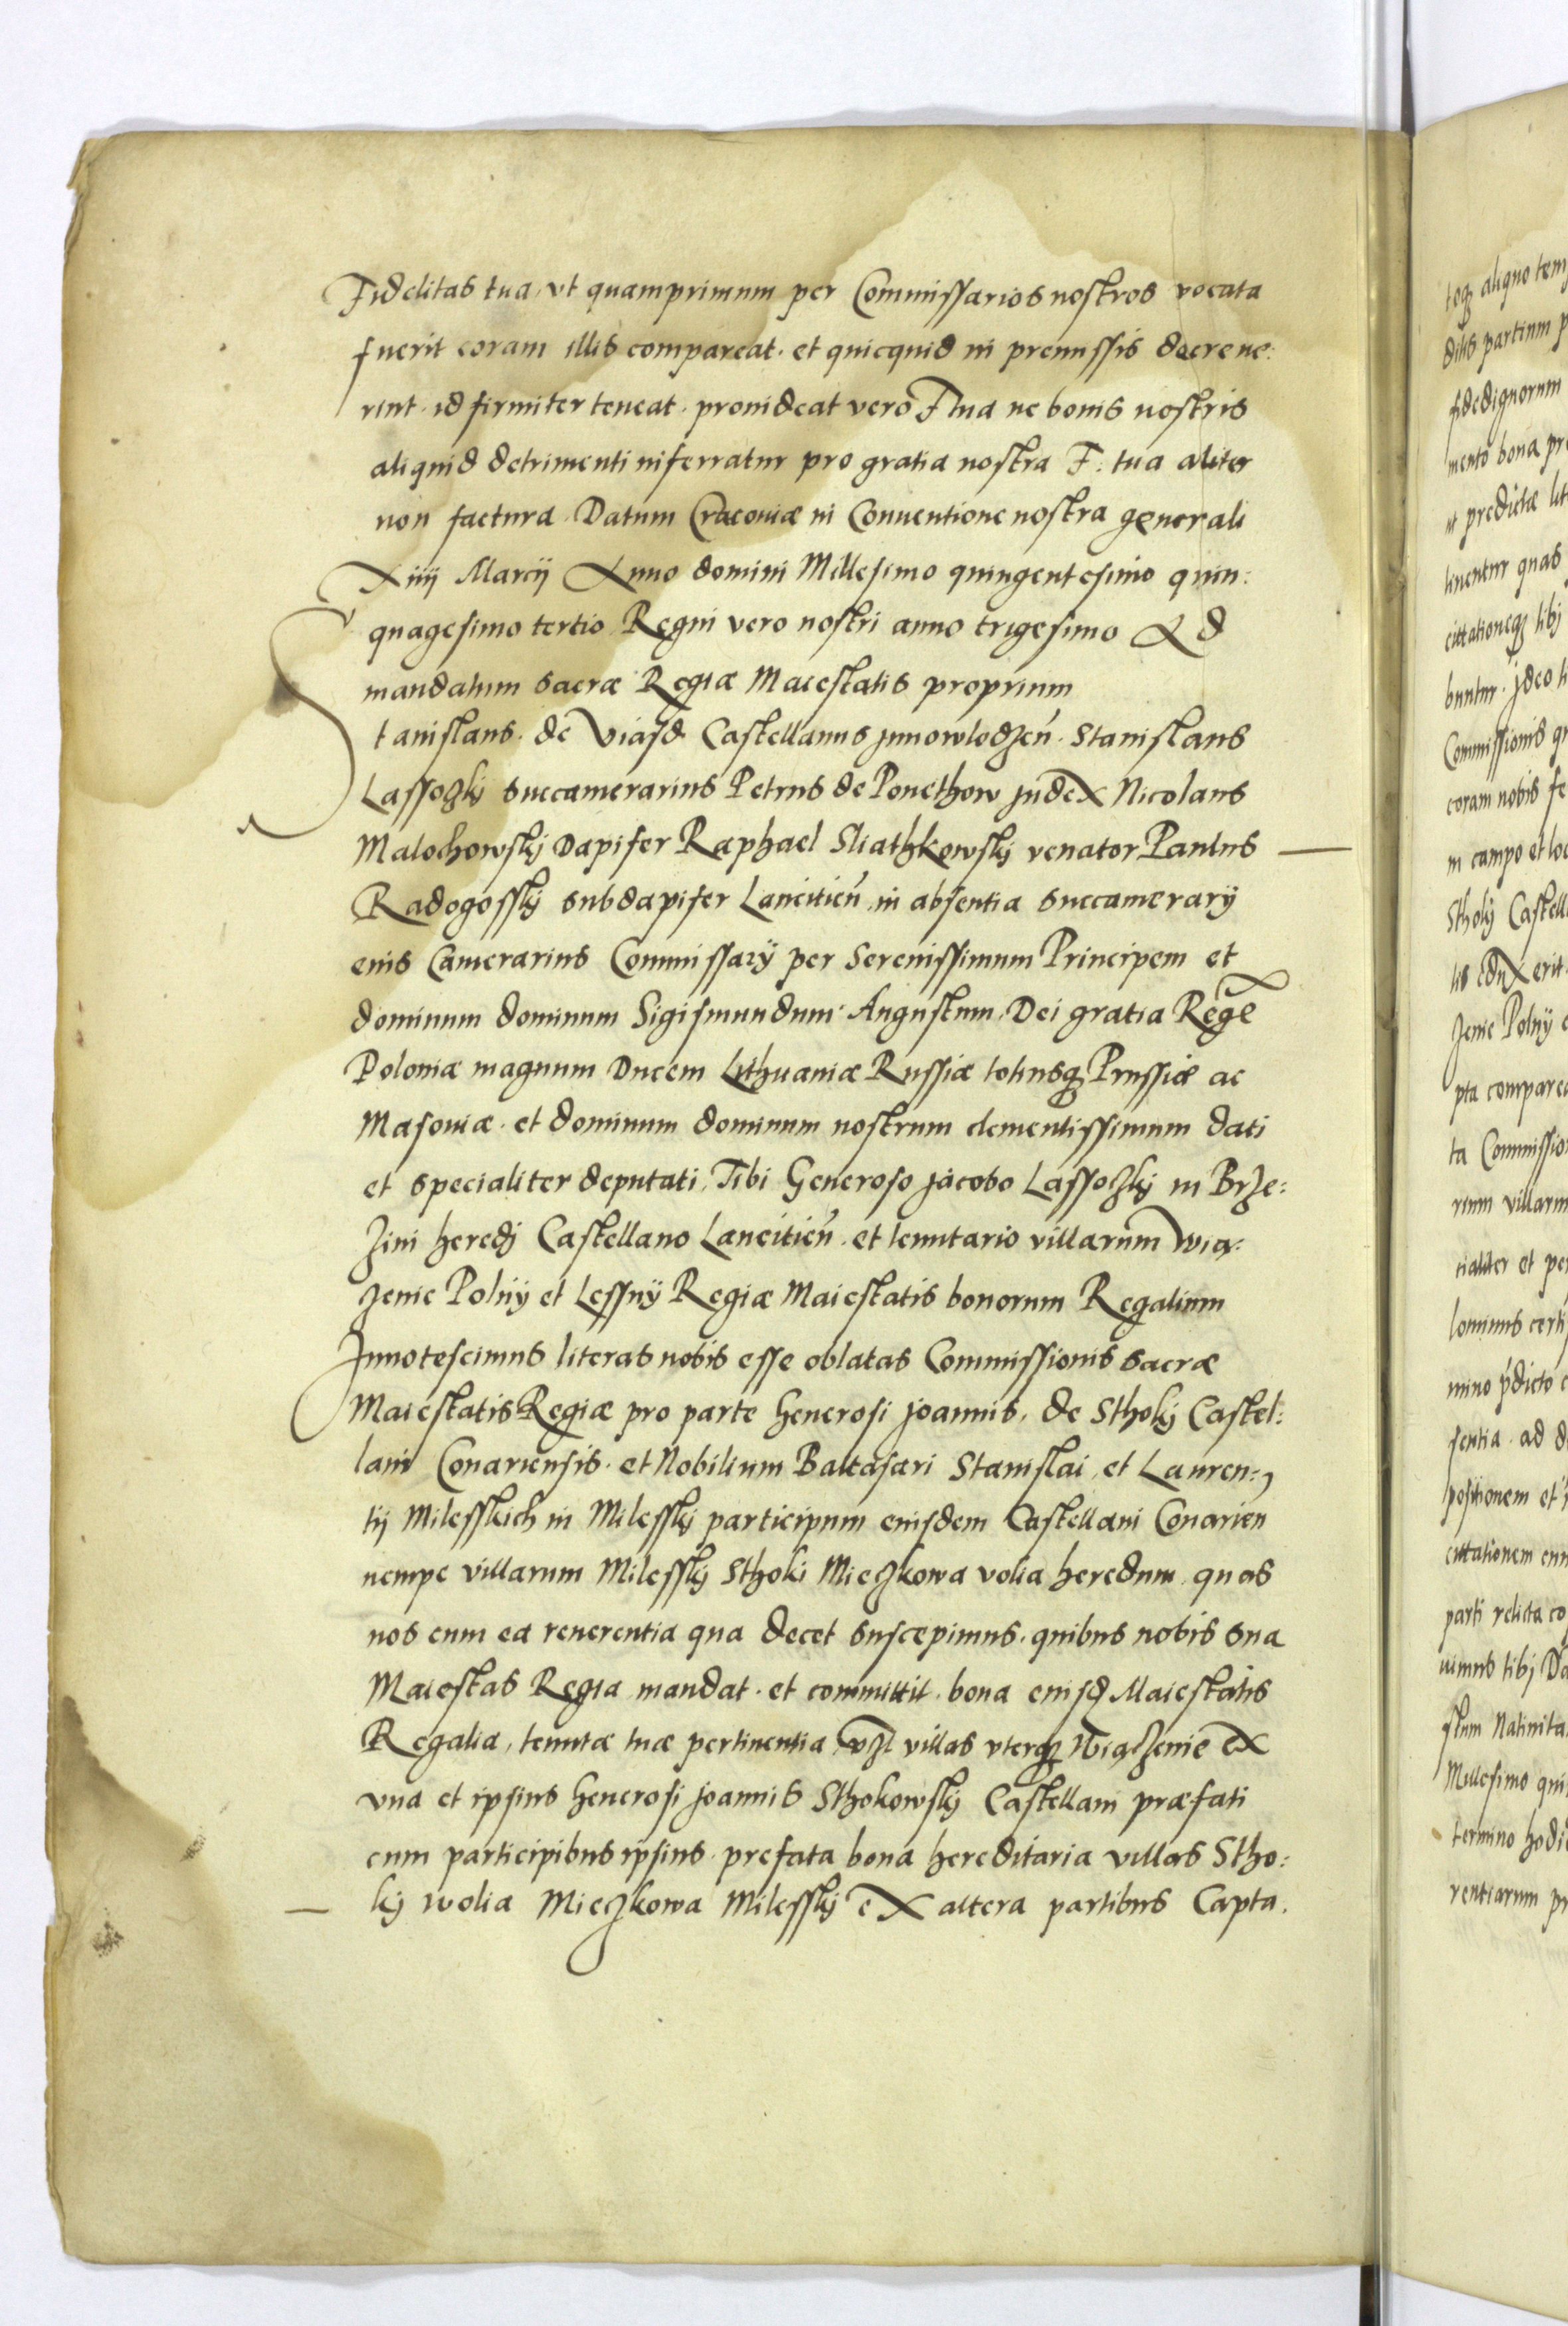 Fidelitas tua, vt quamprimum per Commissarios nostros vocata
fuerit coram illis compareat. et quicquid in premissis decreue:
rint. id firmiter teneat. prouideat vero F tua ne bonis nostris
aliquid detrimenti inferratur pro gratia nostra F: tua aliter
non factura. Datum Cracouiæ in Conuentione nostra generali
Xiiij Marcij Anno domini Millesimo quingentesimo quin:
quagesimo tertio Regni vero nostri anno trigesimo Ad
mandatum sacræ Regiæ Maiestatis proprium
Stanislaus. de Viasd Castellanus Junowlodzen̄. Stanislaus
Lassozkj succamerarius Petrus de Ponethow judex Nicolaus
Malochowskj Dapifer Raphael Sliathkowskj venator Paulus
Radogosskj subdapifer Lancitien̄. in absentia succamerarij
eius Camerarius Commissarij per Serenissimum Principem et
dominum dominum Sigismundum Augustum. Dei gratia Regē
Poloniæ magnum Ducem Lithuaniæ Russiæ totiusq Prussiæ ac
Masouiæ. et dominum dominum nostrum clementissimum dati
et specialiter deputati, Tibi Generoso jacobo Lassozkj in Brze:
zini heredj Castellano Lancitien̄. et tenutario villarum Wią:
zenie Polnÿ et Lessnÿ Regiæ Maiestatis bonorum Regalium
Jnnotescimus literas nobis esse oblatas Commissionis sacræ
Maiestatis Regiæ pro parte Generosi joannis, de Sthokj Castel:
lani Conariensis. et Nobilium Baltasari Stanislai, et Lauren:
tij Milesskich in Milesskj participum eiusdem Castellani Conarien
nempe villarum Milesskj Sthoki Mieczkowa volia heredum. quas
nos cum ea reuerentia qua decet suscepimus. quibus nobis sua
Maiestas Regia mandat. et committit. bona eiusd Maiestatis
Regalia, tenutæ tuæ pertinentia, vzl villas vterq Wiązenie ex
vna et ipsius Generosi joannis Sthokowskj Castellani præfati
cum participibus ipsius. prefata bona hereditaria villas Stho:
kj wolia Mieczkowa Milesskj ex altera partibus Capta.
toq aliquo tem
ditis partium p
fidedignorum
mento bona pre
ut predictæ lit
tinentur quas
cittationeq tibj
buntur. jdeo ti
Commissionis qu
coram nobis fe
in campo et loc
Stholj Castell
tis edux erit.
zenie Polnÿ
pta comparea
ta Commissio
rium villarum
cialiter et per
lominus certi
mino p̄dicto
sentia. ad d
positionem et
cittationem eun
parti relicta co
uimus tibj Da
stum Natiuita
Millesimo qui
termino hodie
rentiarum pr